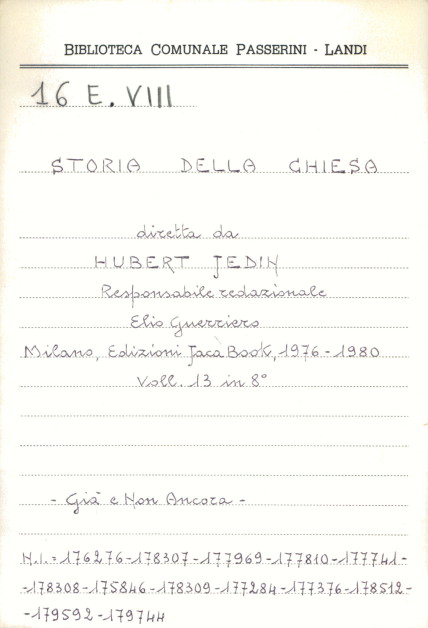 BIBLIOTECA COMUNALE PASSERINI - LANDI
16 E. VIII
STORIA DELLA CHIESA
diretta da
HUBERT JEDIN
Responsabile redazionale
Elio Guerriero
Milano, Edizioni Jacà Book, 1976-1980
Voll. 13 in 8°
- Già e Non Ancora -
N.I. = 176276-178307-177969-177810-177741-
-178308-175846-178309-177284-177376-178512-
-179592-179744